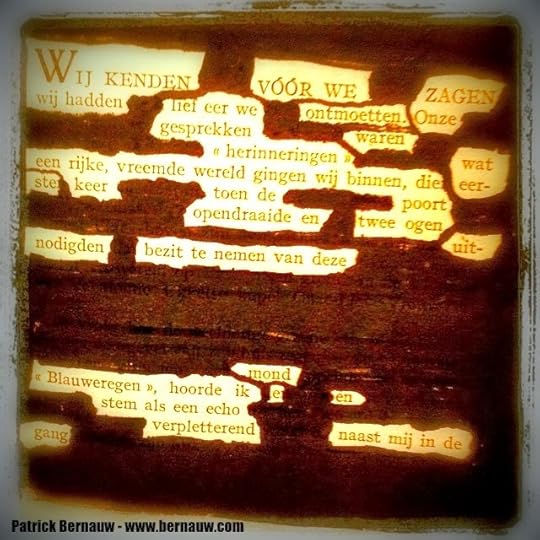 WIJ KENDEN VÓÓR WE ZAGEN
wij hadden lief eer we ontmoetten. Onze
gesprekken waren
« herinneringen » wat
een rijke, vreemde wereld gingen wij binnen, die eer-
ste keer toen de poort
opendraaide en twee ogen
nodigden bezit te nemen van deze uit-
mond
« Blauweregen », hoorde ik en
stem als een echo
gang verpletterend naast mij in de
Patrick Bernauw - www.bernauw.com